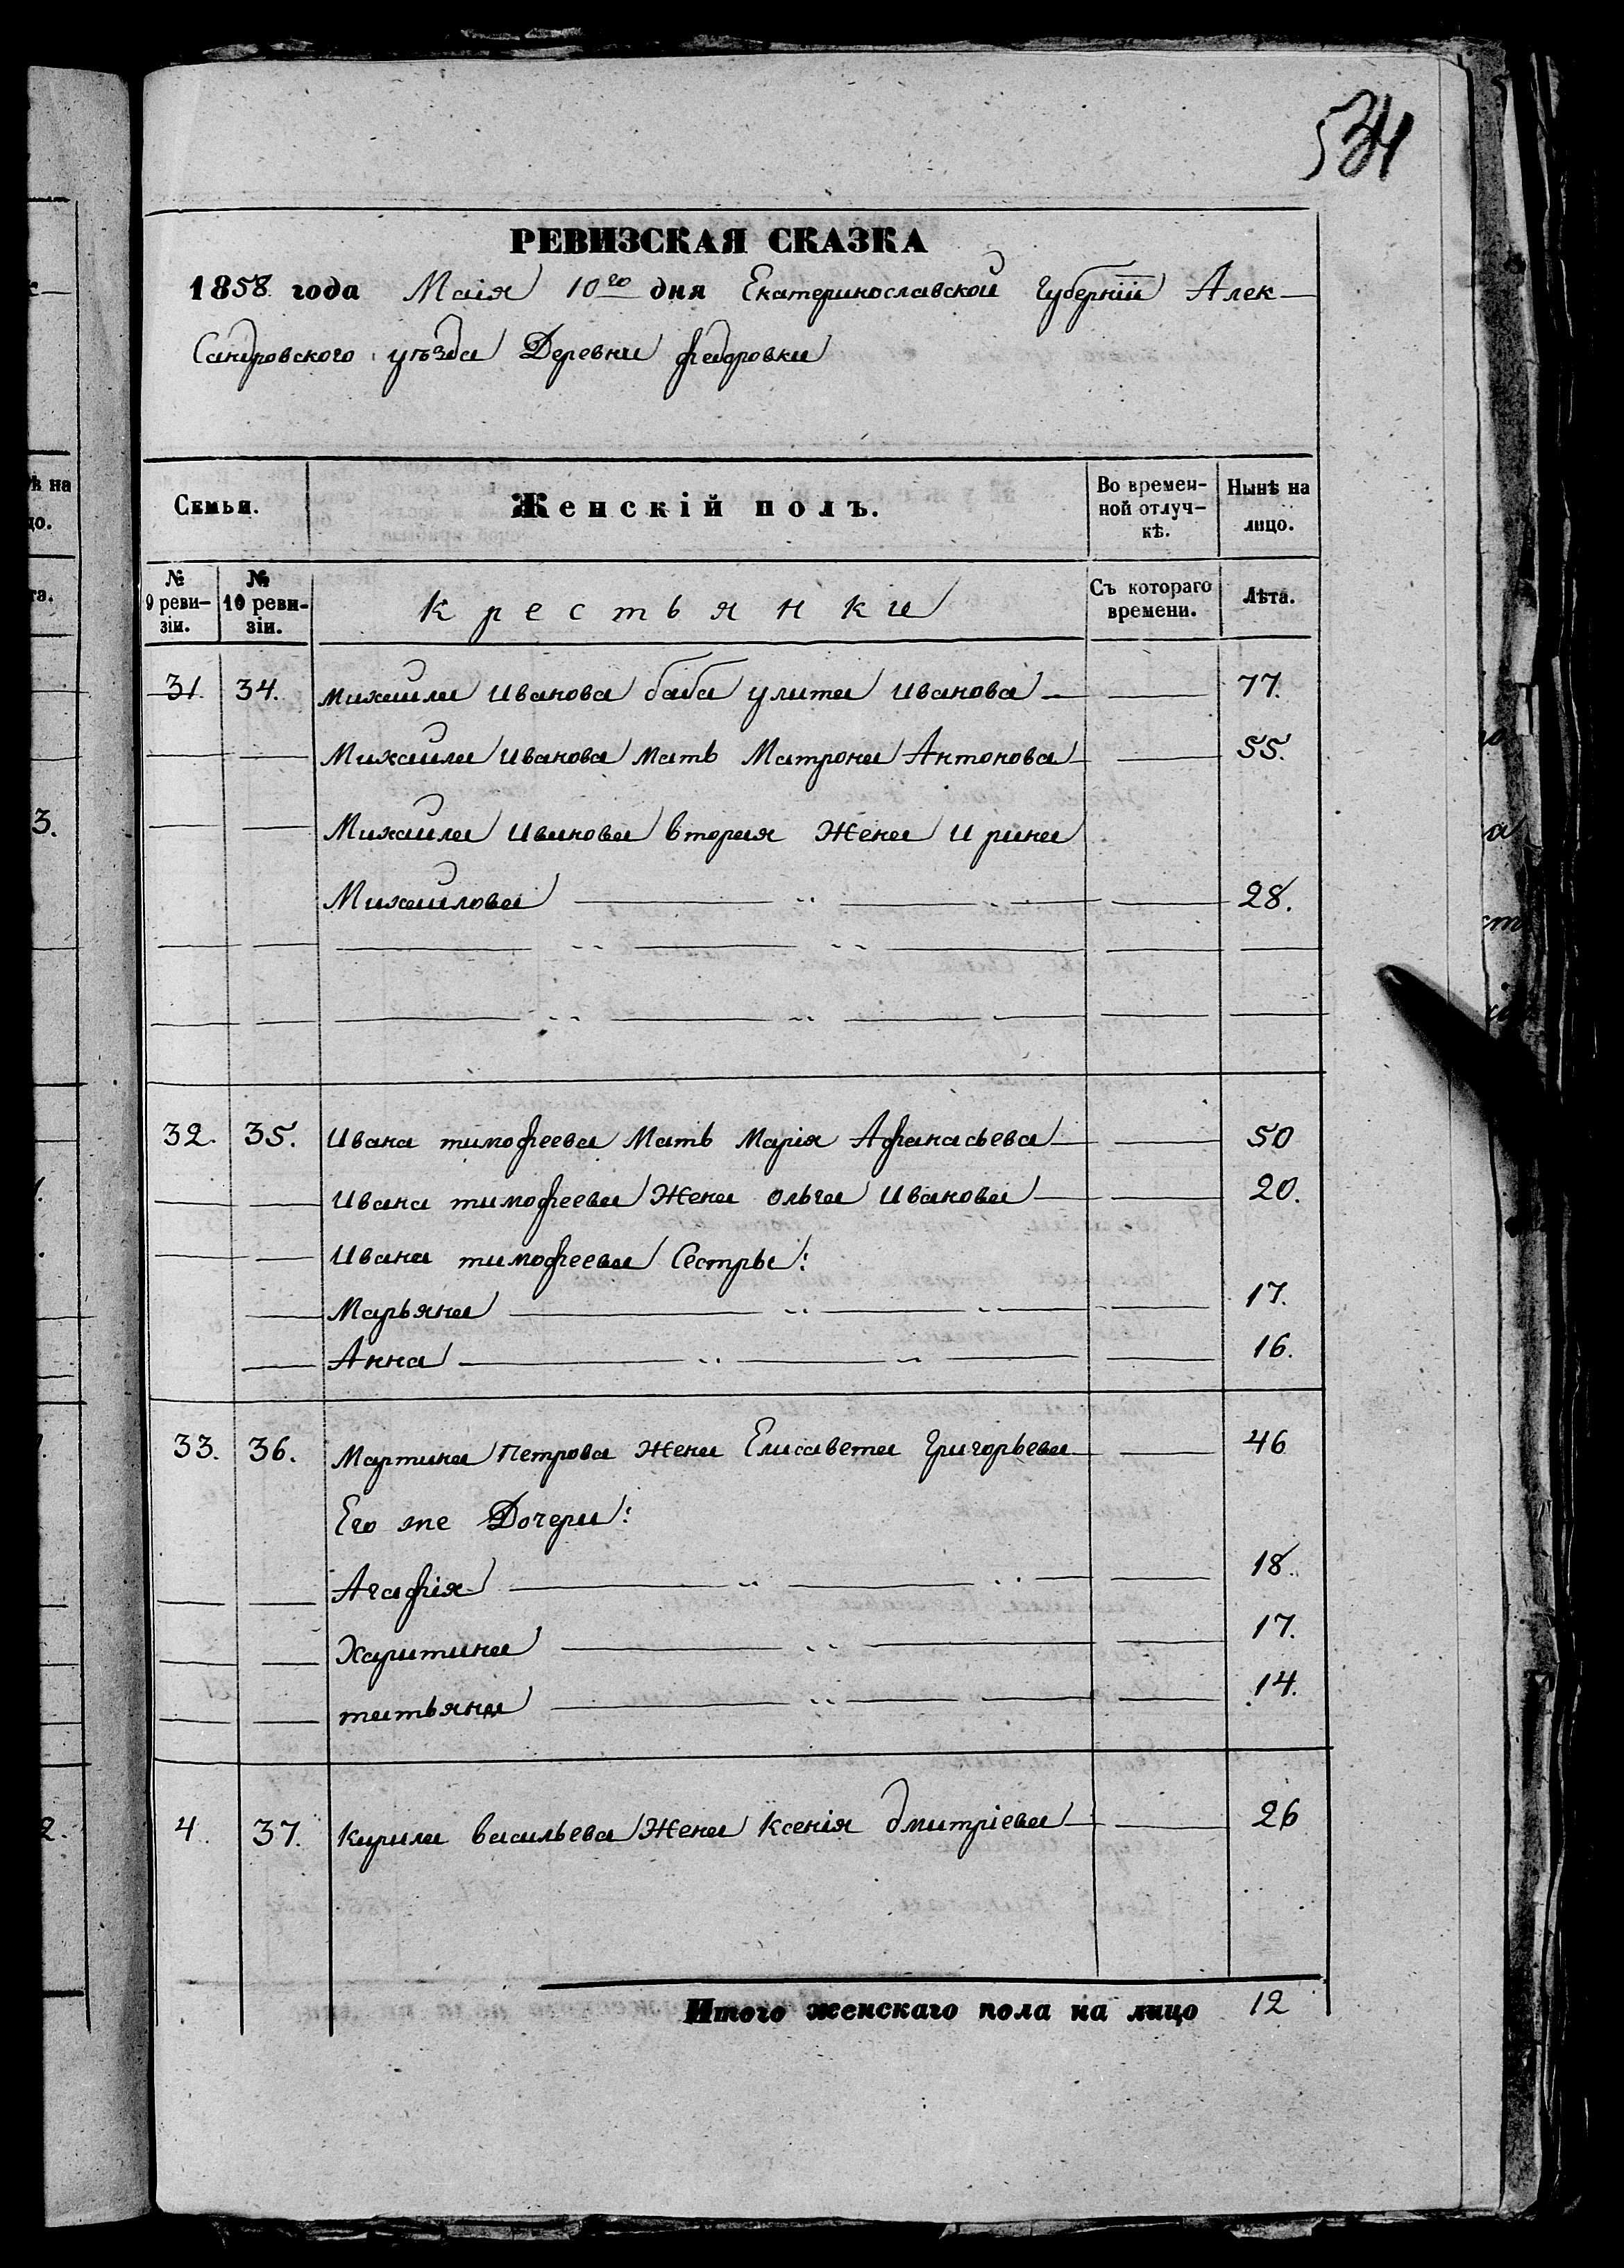 534
РЕВИЗСКАЯ СКАЗКА
1858 года Маія 10го дня Екатеринославской Губерніи Алек-
сандровского уѣзда Деревни Федоровки
Семьи. Женскій полъ. Во времен-ной отлуч-кѣ. Нынѣ на лицо.
№ 9 реви-зіи. № 10 реви-зіи. Крестьянки Съ котораго времени. Лѣта.
31. 34. Михайла Иванова баба улита Иванова 77.
Михайла Иванова мать Матрона Антонова 55.
Михайла Иванова вторая жена Ирина
Михайлова 28.
32. 35. Ивана тимофеева Мать Марія Афанасьева 50
Ивана тимофеева жена ольга Иванова 20.
Ивана тимофеева Сестры:
Марьяна 17.
Анна 16.
33. 36. Мартина Петрова жена Елисавета Григорьева 46
Его же Дочери:
Агафія 18.
Харитина 17.
татьяна 14.
4. 37. Кирила васильева жена Ксенія дмитріева 26
Итого женскаго пола на лицо 12